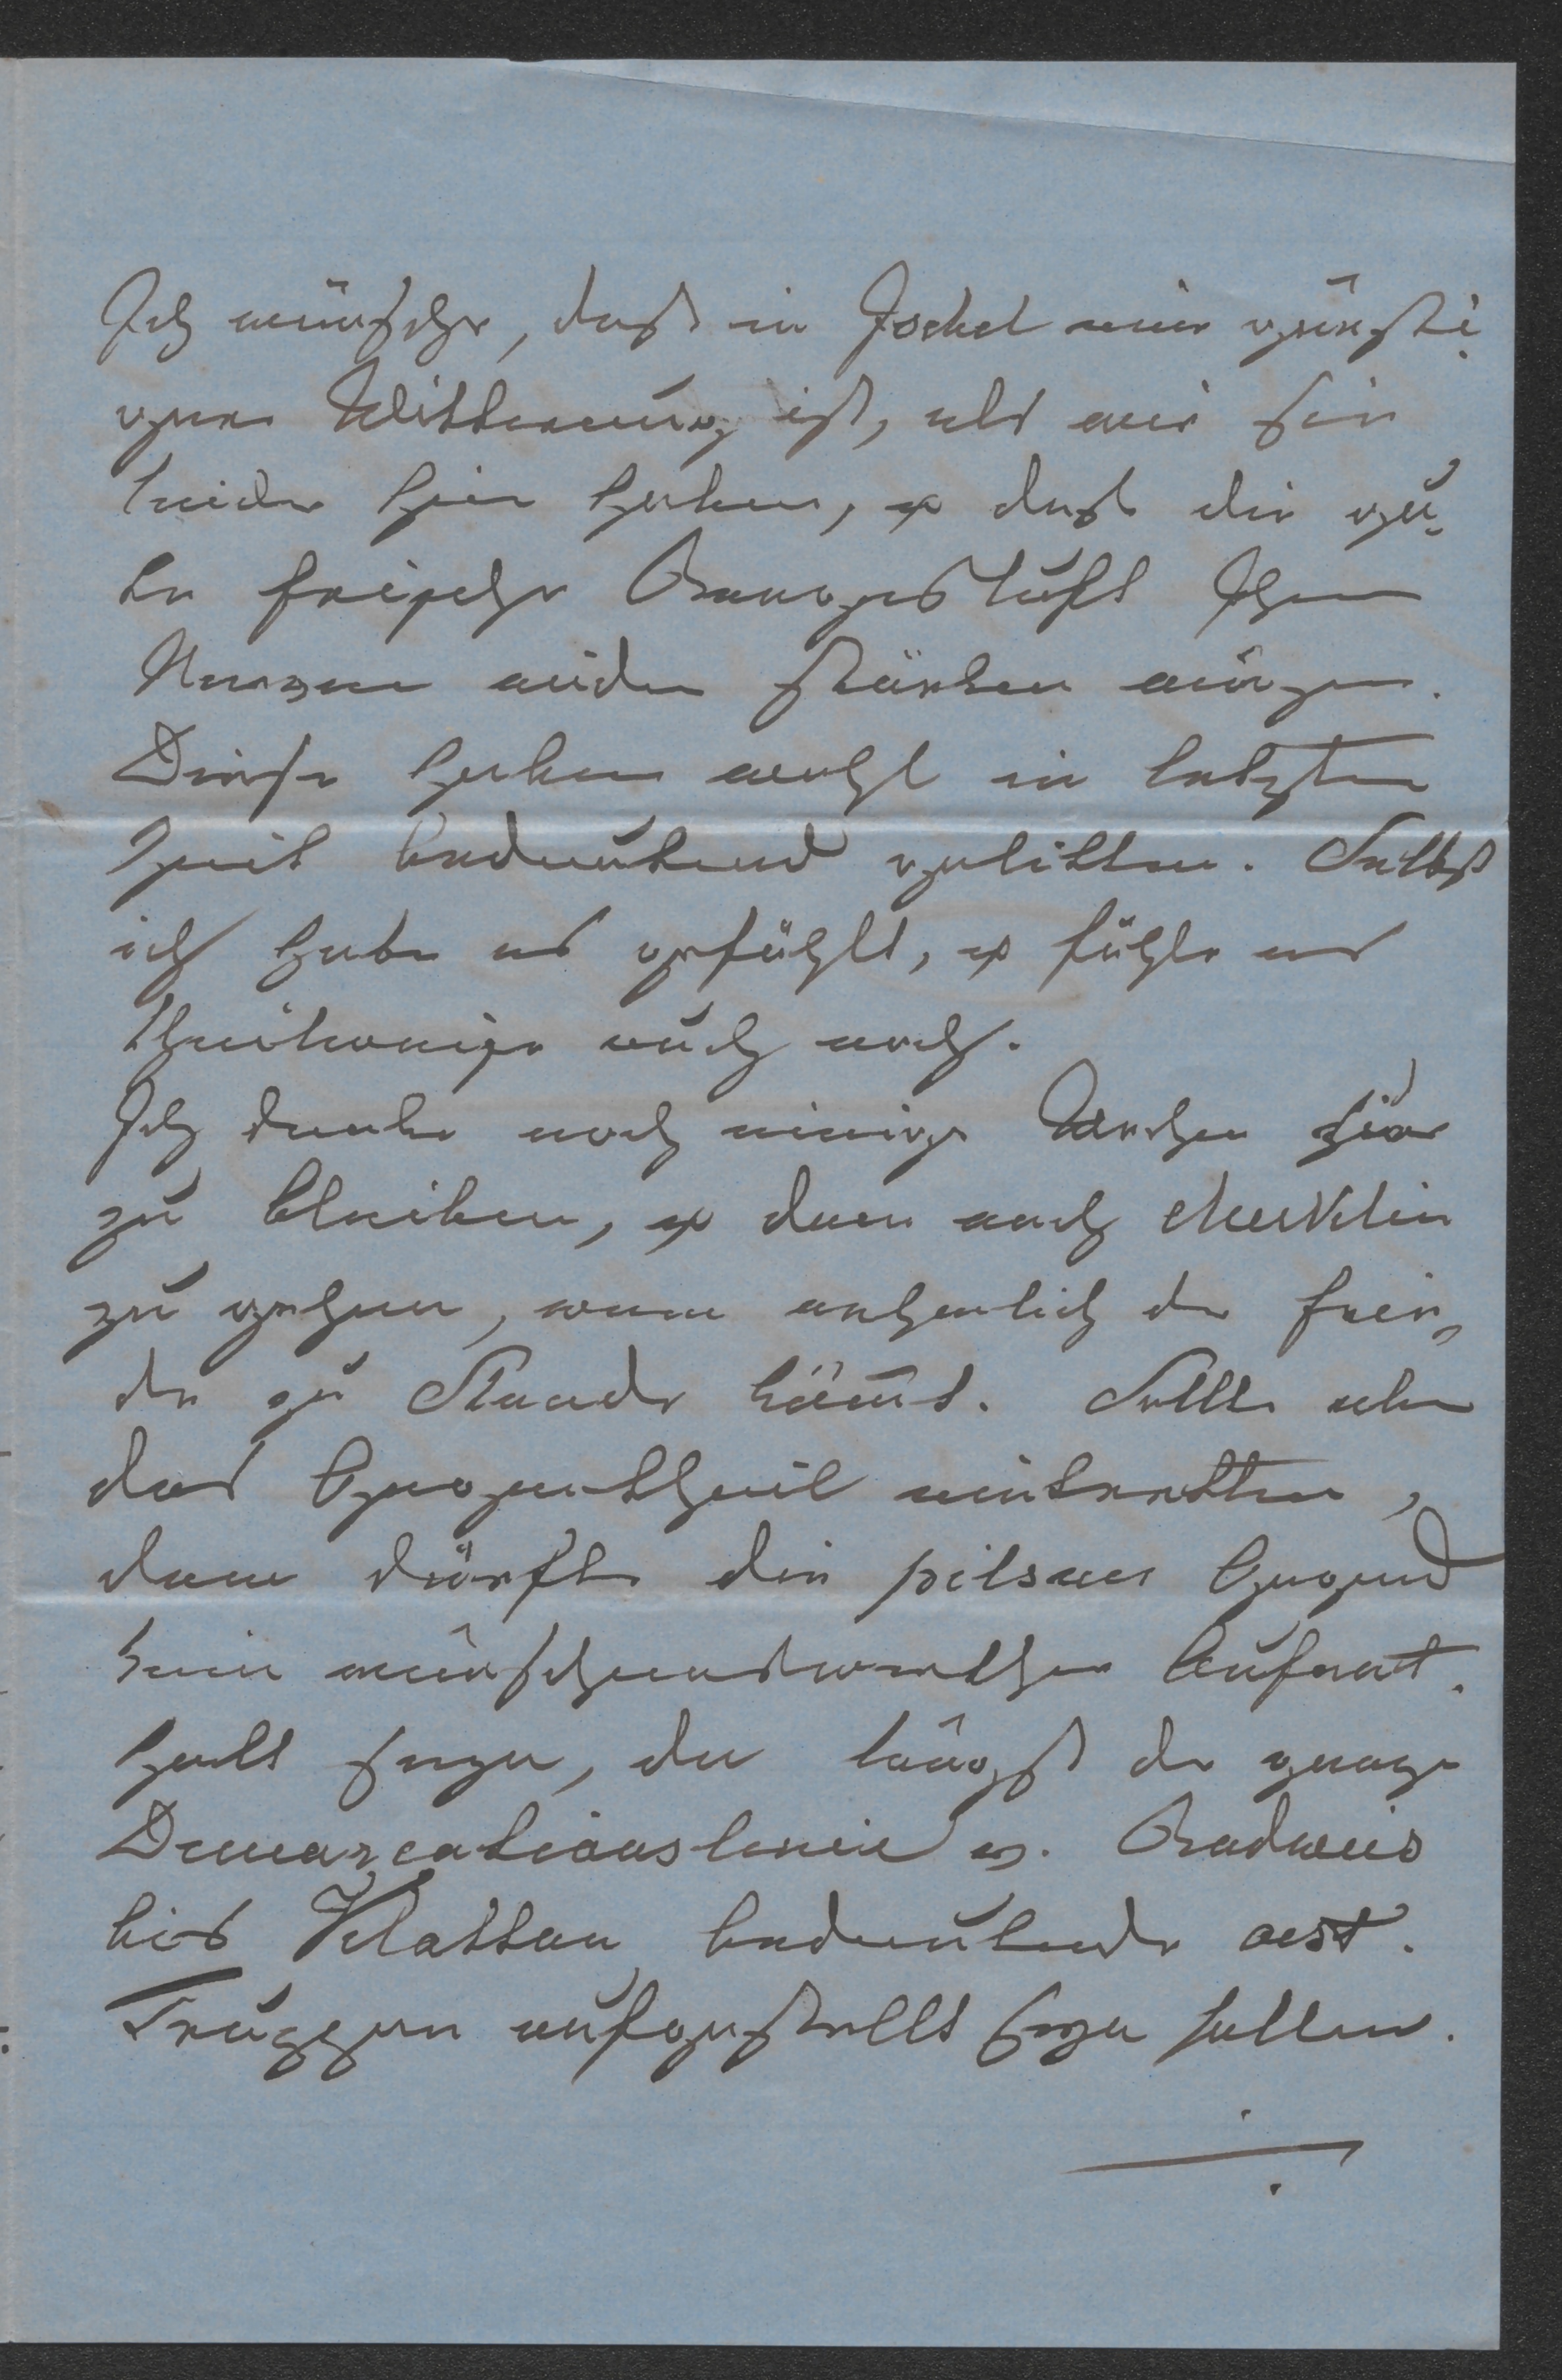 Ich wünsche, daß in Jockel eine günsti-
gere Witterung ist, als wir sie
leider hier haben, & daß die gu-
te frische Bergesluft Ihre
Nerven wieder stärken möge.
Diese haben wohl in letzter
Zeit bedeutend gelitten. Selbst
ich habe es gefühlt, & fühle es
theilweise auch noch.
Ich denke noch einige Wochen hier
zu bleiben, & dann nach Merklin
zu gehen, wenn nehmlich der Frie-
de zu Stande kömt. Sollte aber
das Gegentheil eintretten,
dann dürfte die pilsner Gegend
kein wünschenswerther Aufent-
halt seyn, da längst der ganze
Demarcationslinie v. Budweis
bis Klattau bedeutende oest.
Truppen aufgestellt seyn sollen.